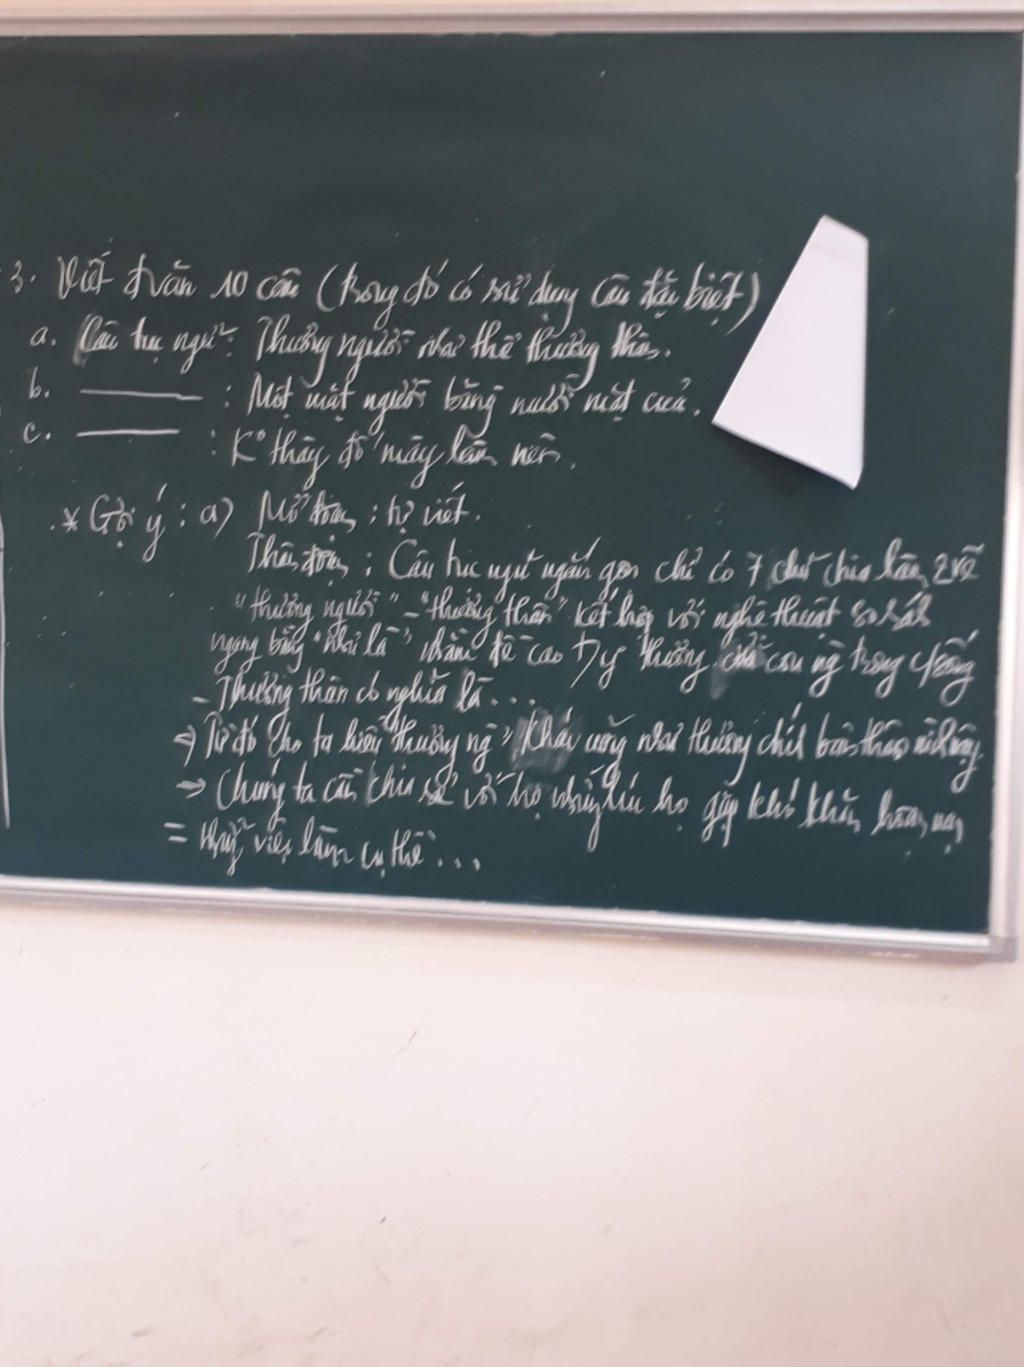 3. Viết đ văn 10 câu (trong đó có sử dụng câu đặc biệt)
a. Câu tục ngữ: Thương người như thể thương thân.
b. ——— : Một mặt người bằng mười mặt của.
c. ——— : K° thầy đố mày làm nên.
* Gợi ý: a) Mở đoạn: tự viết.
Thân đoạn: Câu tục ngữ ngắn gọn chỉ có 7 chữ chia làm 2 vế
"thương người" - "thương thân" kết hợp với nghệ thuật so sánh
ngang bằng "như là" nhằm đề cao thương của con ng trong
- Thương thân có nghĩa là...
=> Từ đó cho ta hiểu "thương ng" khác cũng như thương chính bản thân mình vậy
-> Chúng ta cần chia sẻ với họ những lúc họ gặp khó khăn, hoạn nạn
= những việc làm cụ thể...